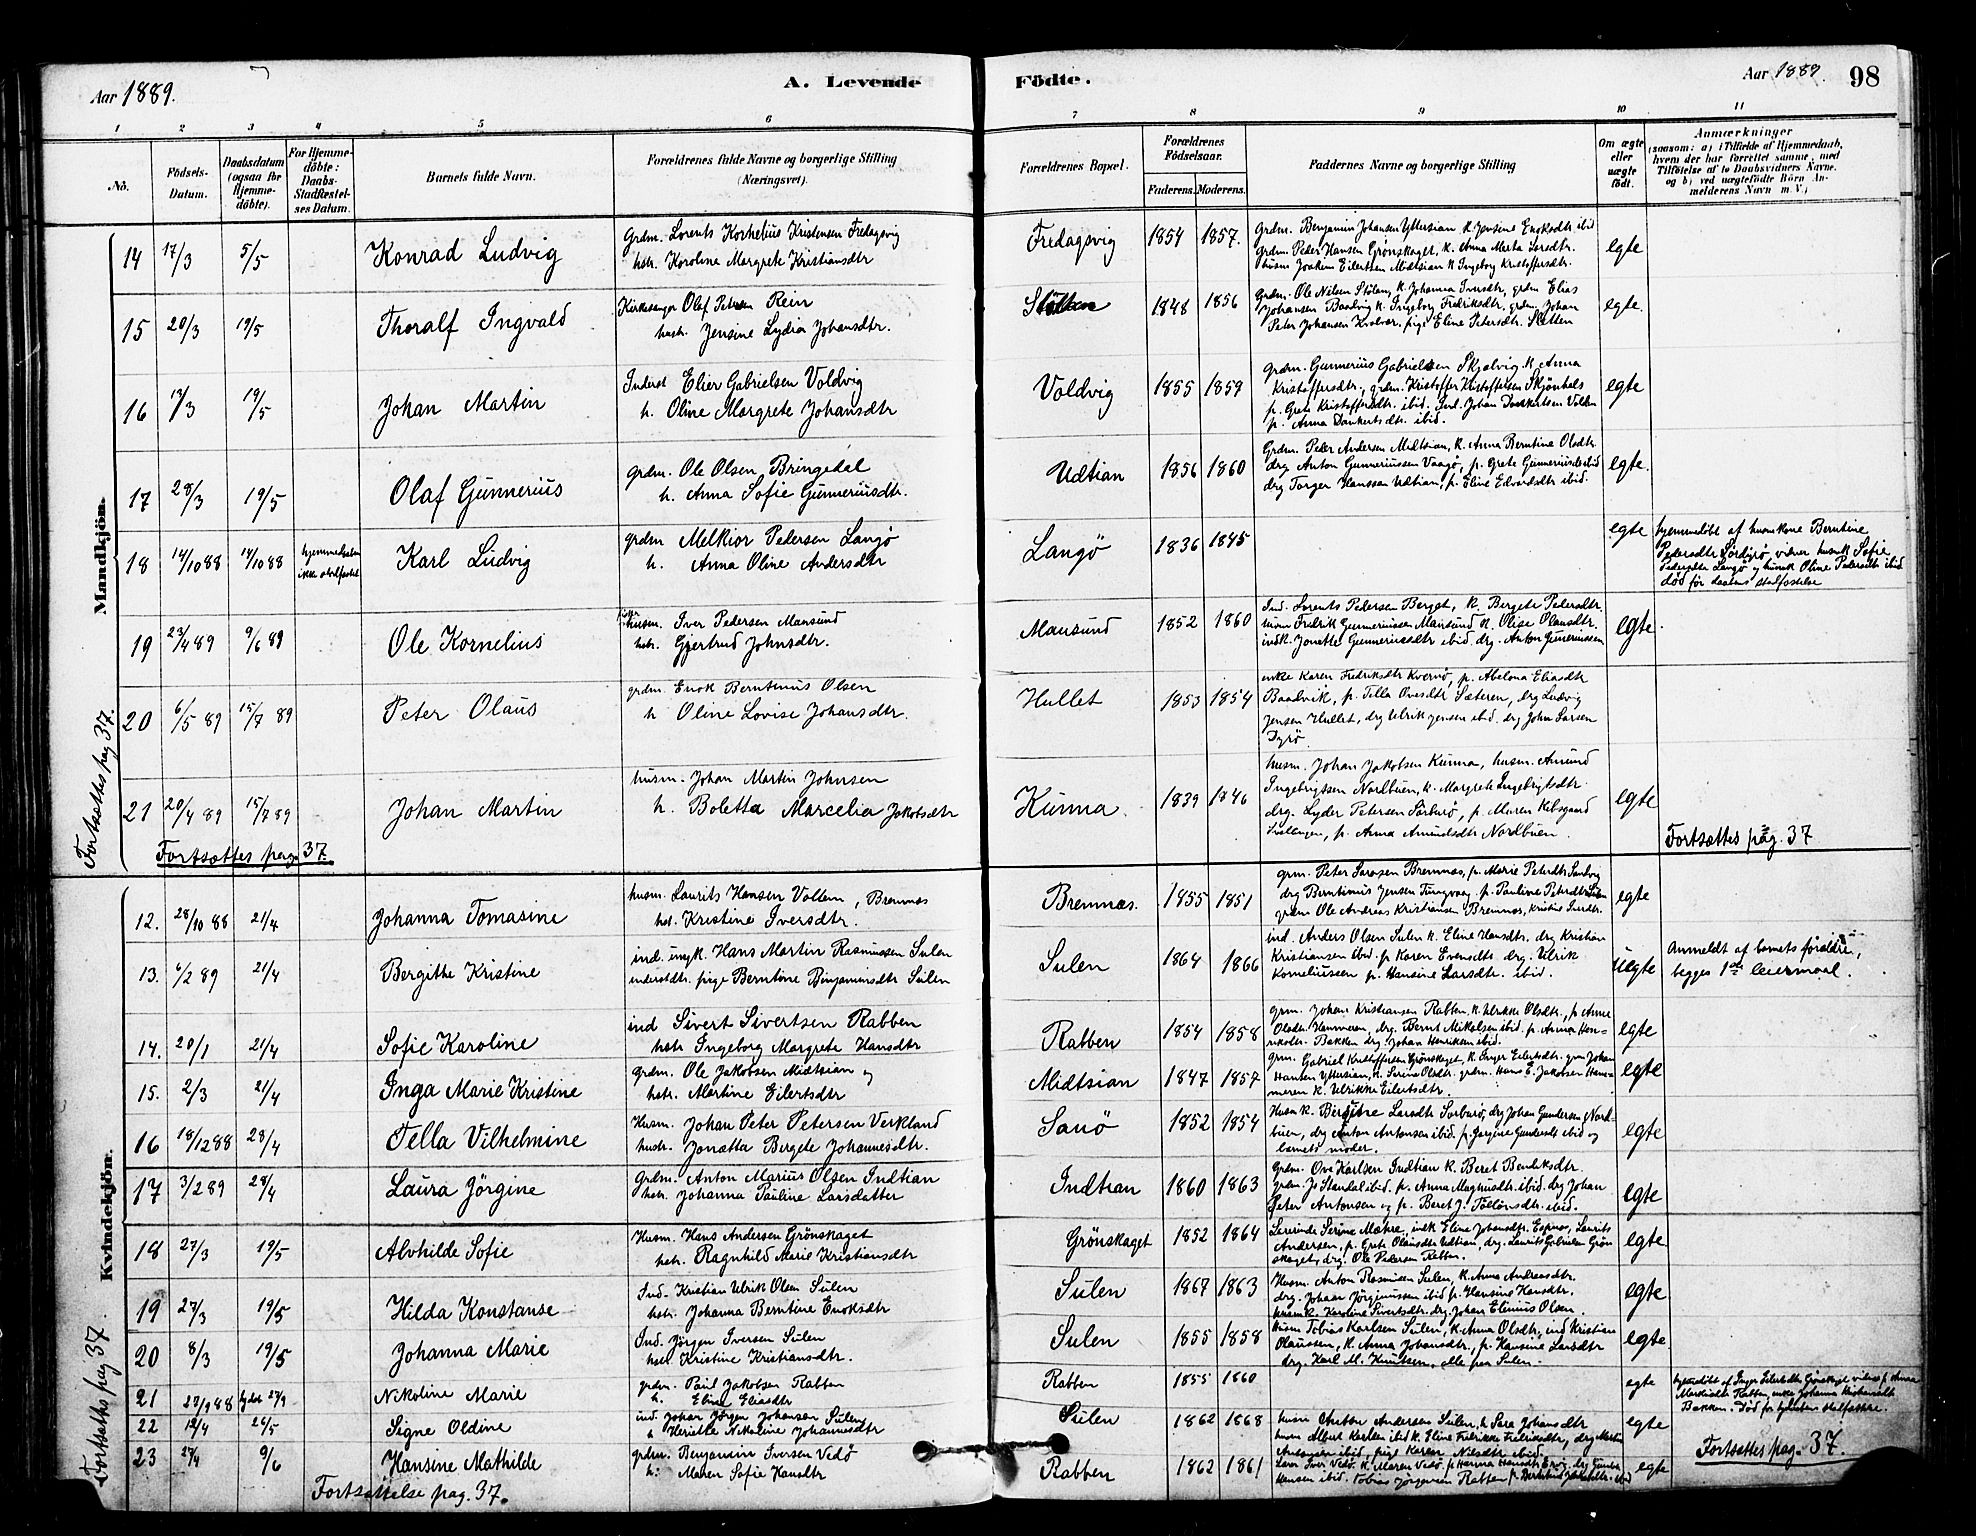 Aar 1889.
A. Levende
Födte.
Aar 1889.
98
1 2 3 4 5 6 7 8 9 10 11
No.
Födsels-
Datum.
Daabsdatum
(ogsaa for
Hjemme-
döbte).
For Hjemme-
döbte:
Daabs-
Stadfæstel-
ses Datum.
Barnets fulde Navn.
Forældrenes fulde Navne og borgerlige Stilling
(Næringsvei).
Forældrenes Bopæl.
Forældrenes
Födselsaar.
Faderens. Moderens.
Faddernes Navne og borgerlige Stilling
Om ægte
eller
uægte
födt.
Anmærkninger
(saasom: a) i Tilfælde af Hjemmedaab,
hvem der har forrettet samme, med
Tilföielse af to Daabsvidners Navne.
og b) ved uægtefödte Börn An-
melderens Navn m. V.)
Mandkjön.
Fortsættes pag 37.
14 17/3 5/5 Konrad Ludvig
Grdm. Lorents Kornelius Kristensen Fredagsvig
hstr. Karoline Margrete Kristiansdtr
Fredagsvig 1854 1857.
Grdm. Benjamin Johansen Yttersian K. Jensine Enoksdtr ibid
Grdm. Peder Hansen Grönskaget, K. Anna Marta Larsdtr.
husm Joakim Eilertsen Midtsian K Ingeborg Kristoffersdtr.
egte
15 20/3 19/5 Thoralf Ingvald
Kirkesanger Olaf Petersen Rein
hustr. Jensine Lydia Johansdtr.
1848 1856
Grdm. Ole Nilsen Stölan, K. Johanna Iversdtr, grdm Elias
Johansen Baadvig K. Ingeborg Fredriksdtr, grdm. Johan
Peter Johansen Kvalvær, pige Eline Petersdtr. Sletten
egte.
16 13/3 19/5 Johan Martin
Inderst Elier Gabrielsen Voldvig
h. Oline Margrete Johansdtr
Voldvig 1855 1859
grdm. Gunnerius Gabrielsen Skjælvig K. Anna
Kristoffersdtr., grdm. Kristoffer Kristoffersen Skjönhals
p. Grete Kristoffersdtr. ibid. Ind. Johan Dankertsen Volden
p. Anna Dankertsdtr. ibid.
egte
17 28/3 19/5 Olaf Gunnerius
grdm. Ole Olsen Bringedal
h. Anna Sofie Gunneriusdtr.
Udtian 1856 1860
Grdm. Peder Andersen Midtsian, K. Anna Berntine Olsdtr.
drg Anton Gunneriussen Vaagö, p. Grete Gunneriusdtr ibid
drg Torger Hanssen Udtian, p. Eline Edvardsdtr ibid.
egte.
18 14/10 88 14/10 88 hjemmedaaben
ikke stadfæstet Karl Ludvig
grdm Melkior Pedersen Langö
h. Anna Oline Andersdtr
Langö 1836 1845
egte
hjemmedöbt af huuskone Berntine
Pedersdtr Sördyrö, vidner husmk Sofie
Pedersdtr Langö og husmk Oline Pedersdtr ibid
död för daabens stadfæstelse
19 23/4 89 9/6 89 Ole Kornelius
husm. Iver Pedersen Mausund
hstr. Gjertrud Johnsdtr.
Mausund 1852 1860
Ind. Lorents Pedersen Berget, K. Bergete Pedersdtr.
husm Fredrik Gunneriussen Mausund K. Olise Olausdtr.
indk. Jonette Gunneriusdtr ibid. drg. Anton Gunneriussen
egte.
20 6/5 89 15/7 89 Peter Olaus
grdm. Enok Berntinus Olsen
h Oline Lovise Johansdtr.
Hullet 1853 1854
enke Karen Fredriksdtr Kvernö, p. Abelona Eliasdtr
Baadvik, p. Tilla Ovesdtr Sæteren, drg Ludvig
Jensen Hullet, drg Ulrik Jensen ibid. drg John Larsen
Dyrö.
21 20/4 89 15/7 89 Johan Martin
husm. Johan Martin Johnsen
h. Boletta Marcelia Jakobsdtr
Kunna. 1839 1846
husm. Johan Jakobsen Kunna, husm. Amund
Ingebrigtsen Nordbuen, K. Margrete Ingebrigtsdtr.
drg. Lyder Petersen Sörburö, p. Maren
p. Anna Amundsdtr Nordbuen.
egte
Fortsættes pag. 37.
Fortsættes pag. 37
Kvindekjön.
Fortsættes pag 37.
12. 28/10 88 21/4 Johanna Tomasine
husm. Laurits Hansen Vollen, Bremnæs
hst. Kristine Iversdtr.
Bremnæs. 1855 1851
grm. Peter Larsen Bremnæs, p. Marie Petersdtr
drg Berntinus Jensen Tungvaag, p. Pauline Petersdtr
grdm Ole Andreas Kristiansen Bremnæs, Kristine Iversdtr.
egte
13. 6/2 89 21/4 Bergithe Kristine
ind. ungk. Hans Martin Rasmussen Sulen
inderstdtr. pige Berntine Benjaminsdtr Sulen
Sulen 1864 1866
ind. Anders Olsen Sulen K. Eline Hansdtr. drg Kristian
Kristiansen ibid. p Karen Evensdtr. drg. Ulrik
Korneliussen p. Hansine Larsdtr. ibid.
Uegte
Anmeldt af barnets forældre,
begges 1ste leiermaal.
14. 20/1 21/4 Sofie Karoline
ind Sivert Sivertsen Rabben
hstr Ingeborg Margrete Hansdtr
Rabben 1854 1858
grm. Johan Kristiansen Rabben, K. Ulrikke Olsdtr., p Anne
Olsdtr. Hammeren, drg. Bernt Mikalsen ibid. p. Anna Hen-
riksdtr. Bakken drg. Johan Henriksen ibid.
egte
15. 2/3 21/4 Inga Marie Kristine
Grdm. Ole Jakobsen Midtsian og
hstr. Martine Eilertsdtr
Midtsian 1847 1857
grm. Gabriel Kristoffersen Grönskaget, K. Inger Eilertsdtr. grm Johan
Hansen Yttersian, K. Serine Olsdtr. grdm. Hans E. Jakobsen Ham-
meren K. Ulrikke Eilertsdtr.
egte
16 18/12 88 28/4 Tella Vilhelmine
Husm. Johan Peter Petersen Verkland
hustr. Jonætta Bergete Johannesdtr.
Sanö 1852 1854
Husm K. Bergitte Larsdtr Sörburö, drg Johan Gundersen Nord-
buen, drg Anton Antonsen ibid. p. Jörgine Gundersdtr ibid og
barnets moder.
egte
17 3/2 89 28/4 Laura Jörgine
Grdm. Anton Marius Olsen Indtian
hstr. Johanna Pauline Larsdatter
Indtian 1860 1863
Grdm. Ove Karlsen Indtian K. Beret Bendiksdtr.
grdm. Jo Standal ibid. p. Anna Magnusdtr. ibid. drg Johan
Peter Antonsen og p. Beret J. ibid.
egte
18 27/3 19/5 Alvhilde Sofie
Husm. Hans Andersen Grönskaget
hstr. Ragnhild Marie Kristiansdtr
Grönskaget 1852 1864
Lærerinde Serine Mæhre, indk Eline Johansdtr. Espnes, Laurits
Andersen, p. Grete Olausdtr Udtian, drg. Laurits Gabrielsen Grön-
skaget, drg. Ole Pedersen Rabben.
egte
19 27/3 19/5 Hilda Konstanse
Ind. Kristian Ulrik Olsen Sulen
hstr. Johanna Berntine Enoksdtr
Sulen 1867 1863
Husm. Anton Rasmussen Sulen, K. Anna Andreasdtr.
drg. Johan Jörginussen ibid p. Hansine Hansdtr.
husmk. Karoline Sivertsdtr. drg. Johan Elinius Olsen.
egte
20 8/3 19/5 Johanna Marie
Ind. Jörgen Iversen Sulen
hstr. Kristine Kristiansdtr.
Sulen 1855 1858
Husm Tobias Karlsen Sulen, K. Anna Olsdtr, ind Kristian
Olaussen, K. Anna Johansdtr., p. Hansine Larsdtr
drg. Karl M. Knutsen, alle fra Sulen.
egte.
21 27/9 88 27/9 Nikoline Marie
grdm. Paul Jakobsen Rabben
h. Eline Eliasdtr
Rabben 1855 1860
egte
hjemdöbt af Inger Eilertsdtr Grönskaget vidner p. Anna
Rabben, enke Johanna Kristiansdtr
Bakken. Död för daabens stadfæst.
22 12/4 26/5 Signe Oldine
ind. Johan Jörgen Johansen Sulen
h Nikoline Johannesdtr
Sulen 1862 1868
husm Anton Andersen Sulen, K Sara Johansdtr
husm Albert Karlsen ibid K. Eline Fredrikke Fredriksdtr, drg Martin
Antonsen ibid, pige Karen Nilsdtr ibid.
egte
Fortsættes pag. 37.
23 27/4 9/6 Hansine Mathilde
grdm. Benjamin Iversen Vedö
h. Maren Sofie Hansdtr
Rabben 1862 1861
Iver Vedö, K. Maren Vedö, p Hanna Hansdtr
Hansen ibid. Tobias Jörgensen Rabben
egte
Fortsættelse pag. 37.